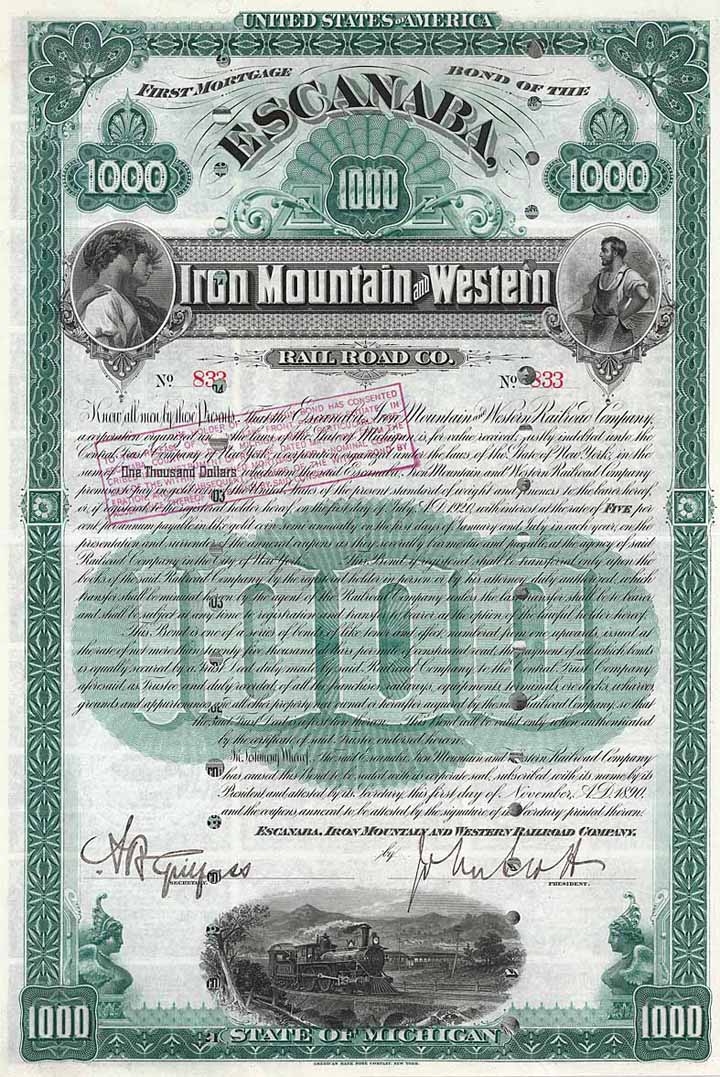 UNITED STATES OF AMERICA
FIRST MORTGAGE BOND OF THE
ESCANABA,
1000 1000 1000
Iron Mountain and Western
RAIL ROAD CO.
No 833 No 833
Know all men by these Presents, That the Escanaba, Iron Mountain and Western Railroad Company
a corporation organized under the laws of the State of Michigan, is for value received, justly indebted unto the
Central Trust Company of New York, a corporation organized under the laws of the State of New York, in the
sum of One Thousand Dollars which said Escanaba, Iron Mountain and Western Railroad Company
promises to pay in gold coin of the United States of the present standard of weight and fineness to the bearer hereof
or, if registered, to the registered holder hereof, on the first day of July A.D. 1920, with interest at the rate of FIVE per
cent per annum payable in like gold coin semi annually on the first days of January and July in each year, on the
presentation and surrender of the annexed coupons as they severally become due and payable at the agency of said
Railroad Company in the City of New York. This Bond if registered shall be transferred only upon the
books of the said Railroad Company by the registered holder in person or by his attorney duly authorized, which
transfer shall be minuted hereon by the agent of the Railroad Company unless the last transfer shall be to bearer
and shall be subject at any time to registration and transfer to bearer at the option of the lawful holder hereof.
This Bond is one of a series of bonds of like tenor and effect, numbered from one upwards, issued at
the rate of not more than twenty five thousand dollars per mile of constructed road, the payment of all which bonds
is equally secured by a Trust Deed duly made by said Railroad Company to the Central Trust Company
aforesaid, as Trustee and duly recorded, of all the franchises, railways, equipments, terminals, ore docks, wharves,
grounds and appurtenances and all other property now owned or hereafter acquired by the said Railroad Company, so that
the said Trust Deed is a first lien thereon. This Bond will be valid only when authenticated
by the certificate of said Trustee endorsed hereon.
In Testimony Whereof, The said Escanaba, Iron Mountain and Western Railroad Company
has caused this Bond to be sealed with its corporate seal, subscribed with its name by its
President and attested by its Secretary, this first day of November, A.D. 1890,
and the coupons annexed to be attested by the signature of its Secretary printed thereon.
ESCANABA, IRON MOUNTAIN AND WESTERN RAILROAD COMPANY.
by
SECRETARY. PRESIDENT.
1000 1000
STATE OF MICHIGAN
AMERICAN BANK NOTE COMPANY, NEW YORK.